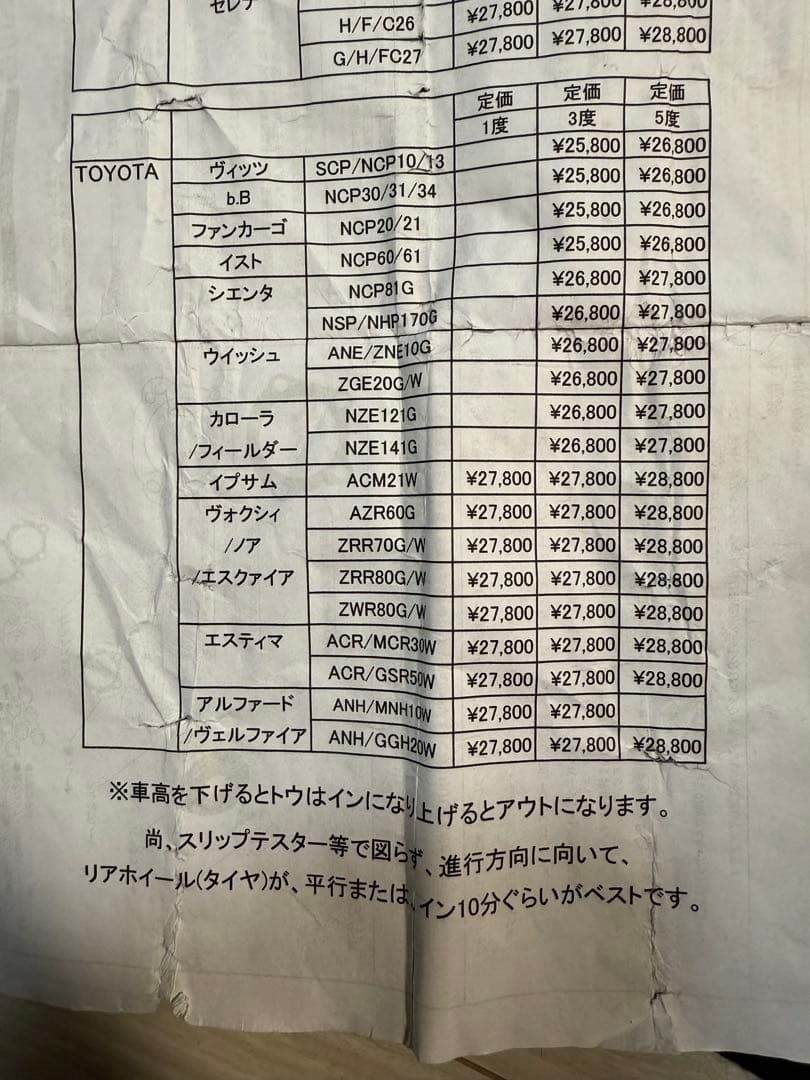 セレナ
¥27,800 ¥27,800 ¥28,800
H/F/C26
G/H/FC27 ¥27,800 ¥27,800 ¥28,800
定価 定価 定価
1度 3度 5度
TOYOTA ヴィッツ SCP/NCP10/13 ¥25,800 ¥26,800
b.B NCP30/31/34 ¥25,800 ¥26,800
ファンカーゴ NCP20/21 ¥25,800 ¥26,800
イスト NCP60/61 ¥25,800 ¥26,800
シエンタ NCP81G ¥26,800 ¥27,800
NSP/NHP170G ¥26,800 ¥27,800
ウイッシュ ANE/ZNE10G ¥26,800 ¥27,800
ZGE20G/W ¥26,800 ¥27,800
カローラ NZE121G ¥26,800 ¥27,800
/フィールダー NZE141G ¥26,800 ¥27,800
イプサム ACM21W ¥27,800 ¥27,800 ¥28,800
ヴォクシィ AZR60G ¥27,800 ¥27,800 ¥28,800
/ノア ZRR70G/W ¥27,800 ¥27,800 ¥28,800
/エスクァイア ZRR80G/W ¥27,800 ¥27,800 ¥28,800
ZWR80G/W ¥27,800 ¥27,800 ¥28,800
エスティマ ACR/MCR30W ¥27,800 ¥27,800 ¥28,800
ACR/GSR50W ¥27,800 ¥27,800 ¥28,800
アルファード ANH/MNH10W ¥27,800 ¥27,800
/ヴェルファイア ANH/GGH20W ¥27,800 ¥27,800 ¥28,800
※車高を下げるとトウはインになり上げるとアウトになります。
尚、スリップテスター等で図らず、進行方向に向いて、
リアホイール(タイヤ)が、平行または、イン10分ぐらいがベストです。